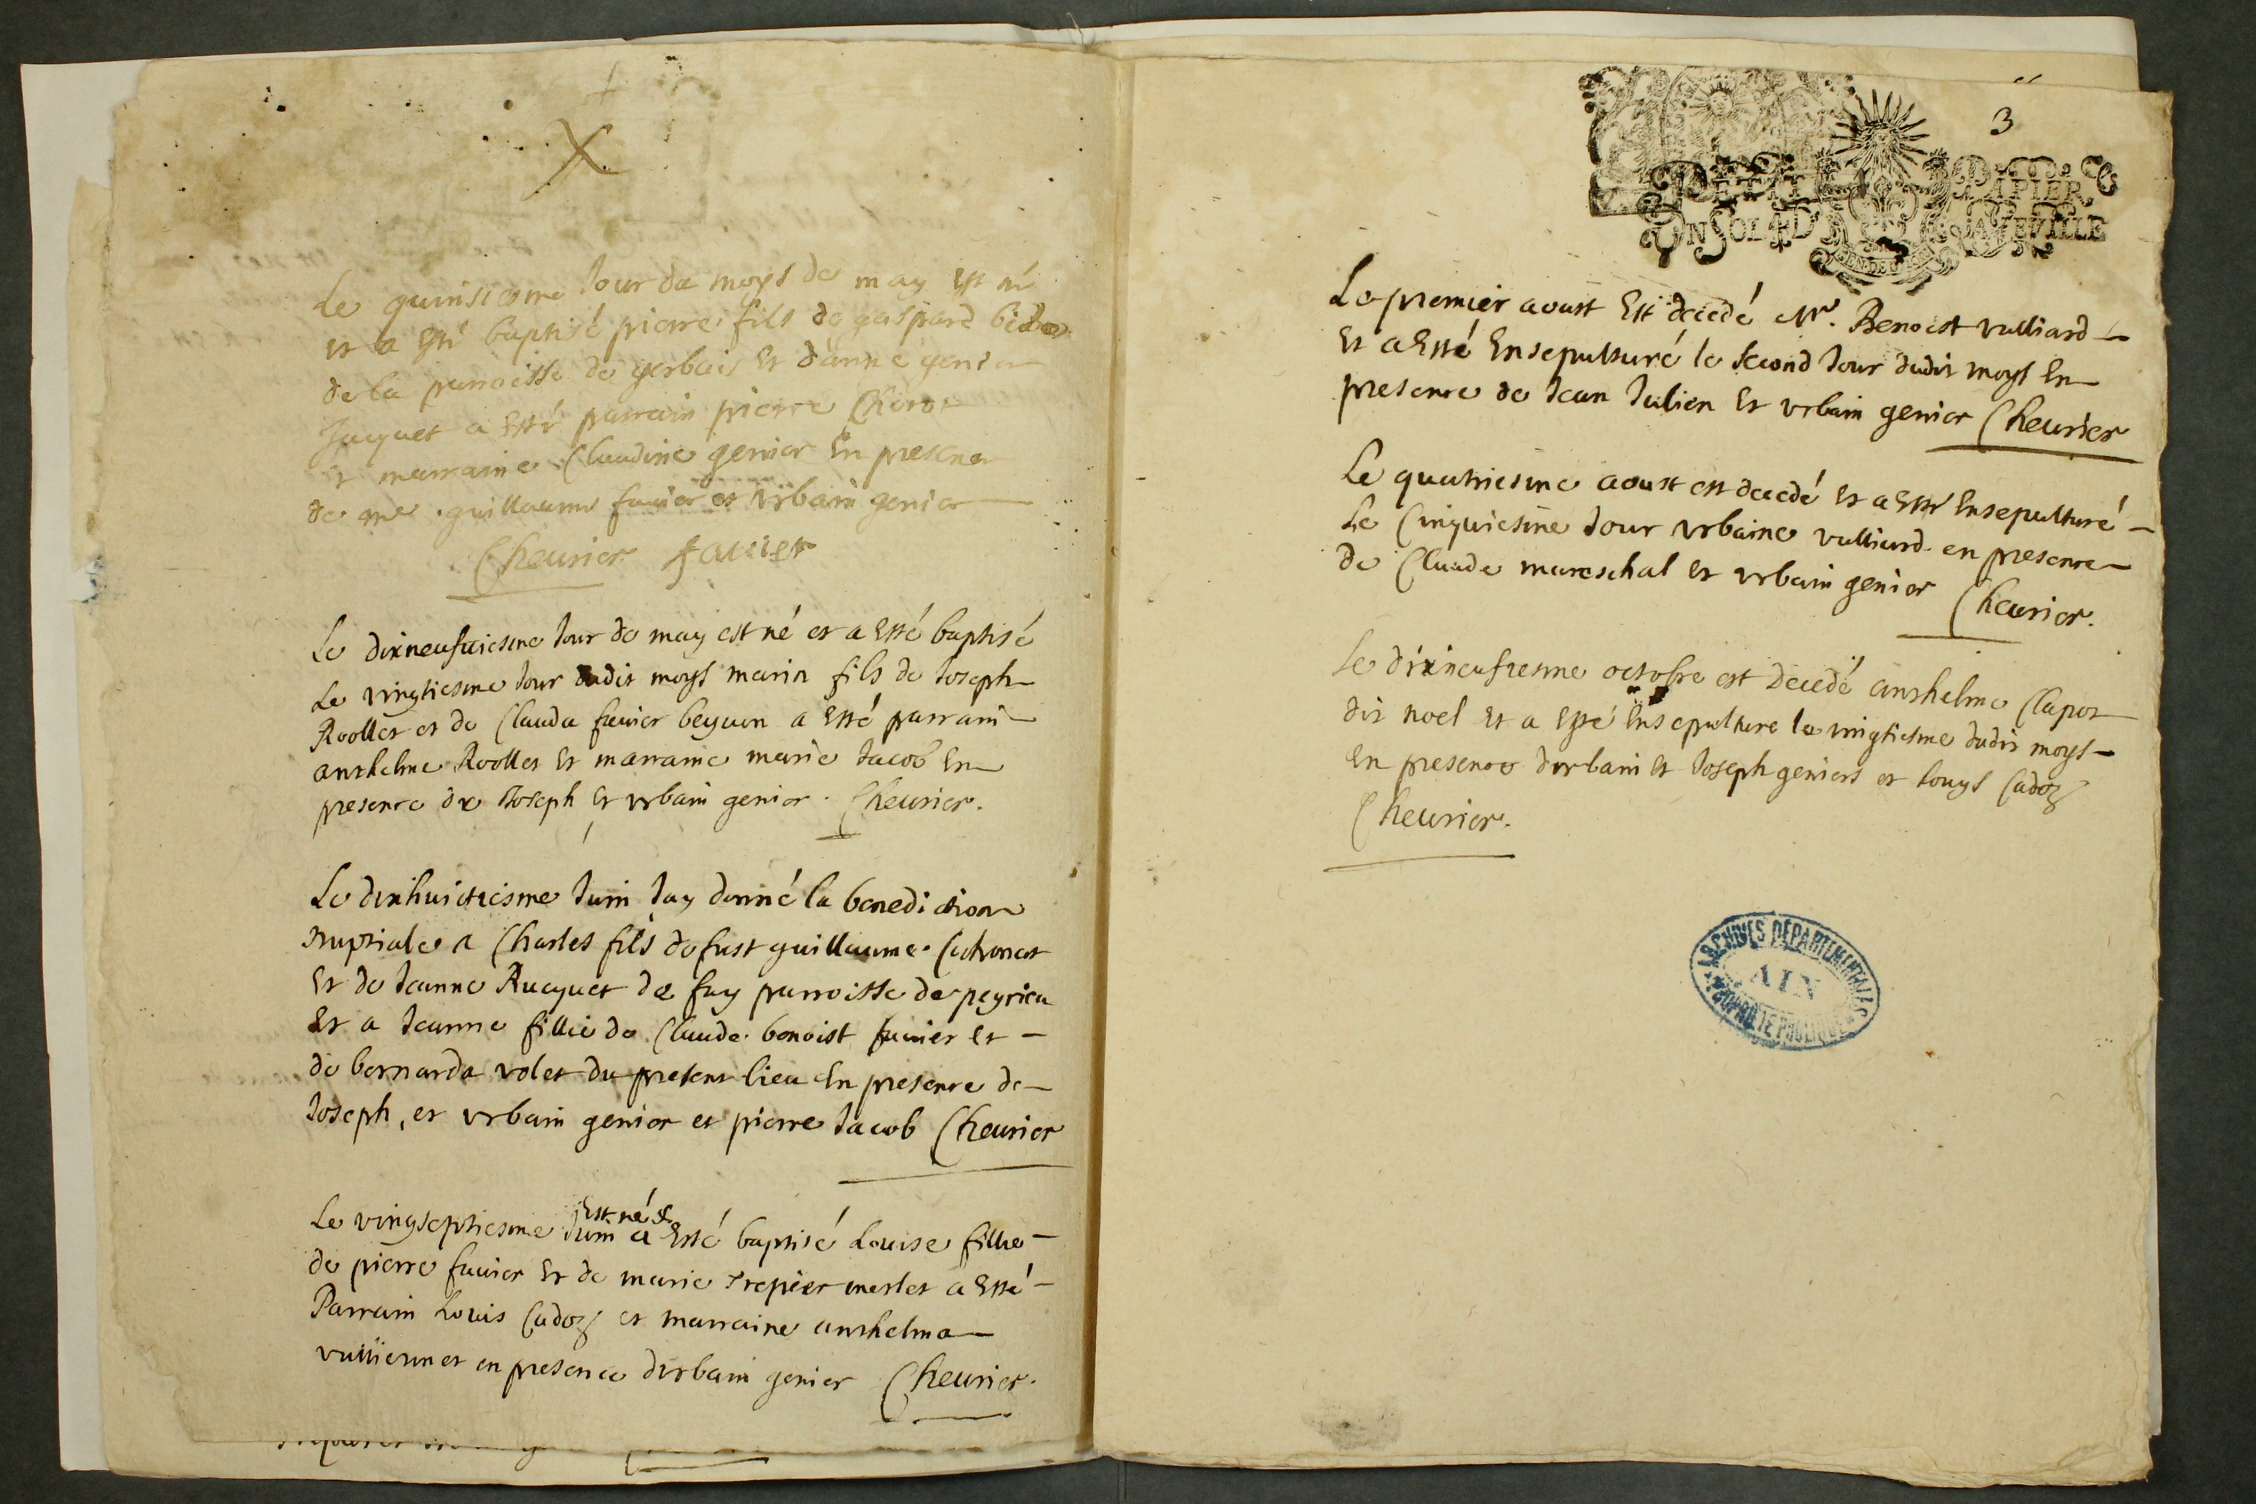 X
Le quinsiesme Jour du moys de may Est né
et a Esté baptisé pierre fils de gaspard
de la parroisse de gerbais Et d'anne genier
Jaquet a Esté parrain pierre
Et marraine Claudine genier En presence
de me guillaume fauier et Vrbain genier
Cheurier fauier
Le dixneufuiesme Jour de may est né et a Esté baptisé
Le vingtiesme Jour dudit moys marin fils de Joseph
Roollet et de Clauda fauier beguen a Esté parrain
anthelme Roollet Et marraine marie Jacob En
presence de Joseph Et vrbain genier. Cheurier.
Le dixhuictiesme Juin Jay donné la benediction
Nuptiale a Charles fils de fust guillaume
Et de Jeanne Ruquet de fay parroisse de peyrieu
Et a Jeanne fillie de Claude benoist fauier et
de bernarda volet du present lieu En presence de
Joseph, et vrbain genier et pierre Jacob Cheurier
Est né &
Le vingseptiesme Juin a Esté baptisé Louise fillie
de pierre fauier Et de marie Trepier merlet a Esté
Parrain Louis Cadoz et marraine anthelma
vulliermet en presence dvrbain genier Cheurier.
3
PETIT PAPIER,
UN SOL 4D LA FEUILLE
Le premier aoust Est decedé Mr. Benoist vulliard
Et a Esté Ensepulturé le second Jour dudit moys En
presence de Jean Julien Et vrbain genier Cheurier
Le quatriesme aoust est decedé et a Esté Ensepulturé
Le Cinquiesme Jour vrbaine vulliard en presence
de Claude mareschal et vrbain genier Cheurier.
Le dixneufiesme octobre est decedé anthelme Clapot
dit noel Et a Esté Ensepulture le vingtiesme dudit moys
En presence dvrbain Et Joseph geniers et louys Cadoz
Cheurier.
ARCHIVES DEPARTEMENTALES
AIN
PROPRIÉTÉ PUBLIQUE